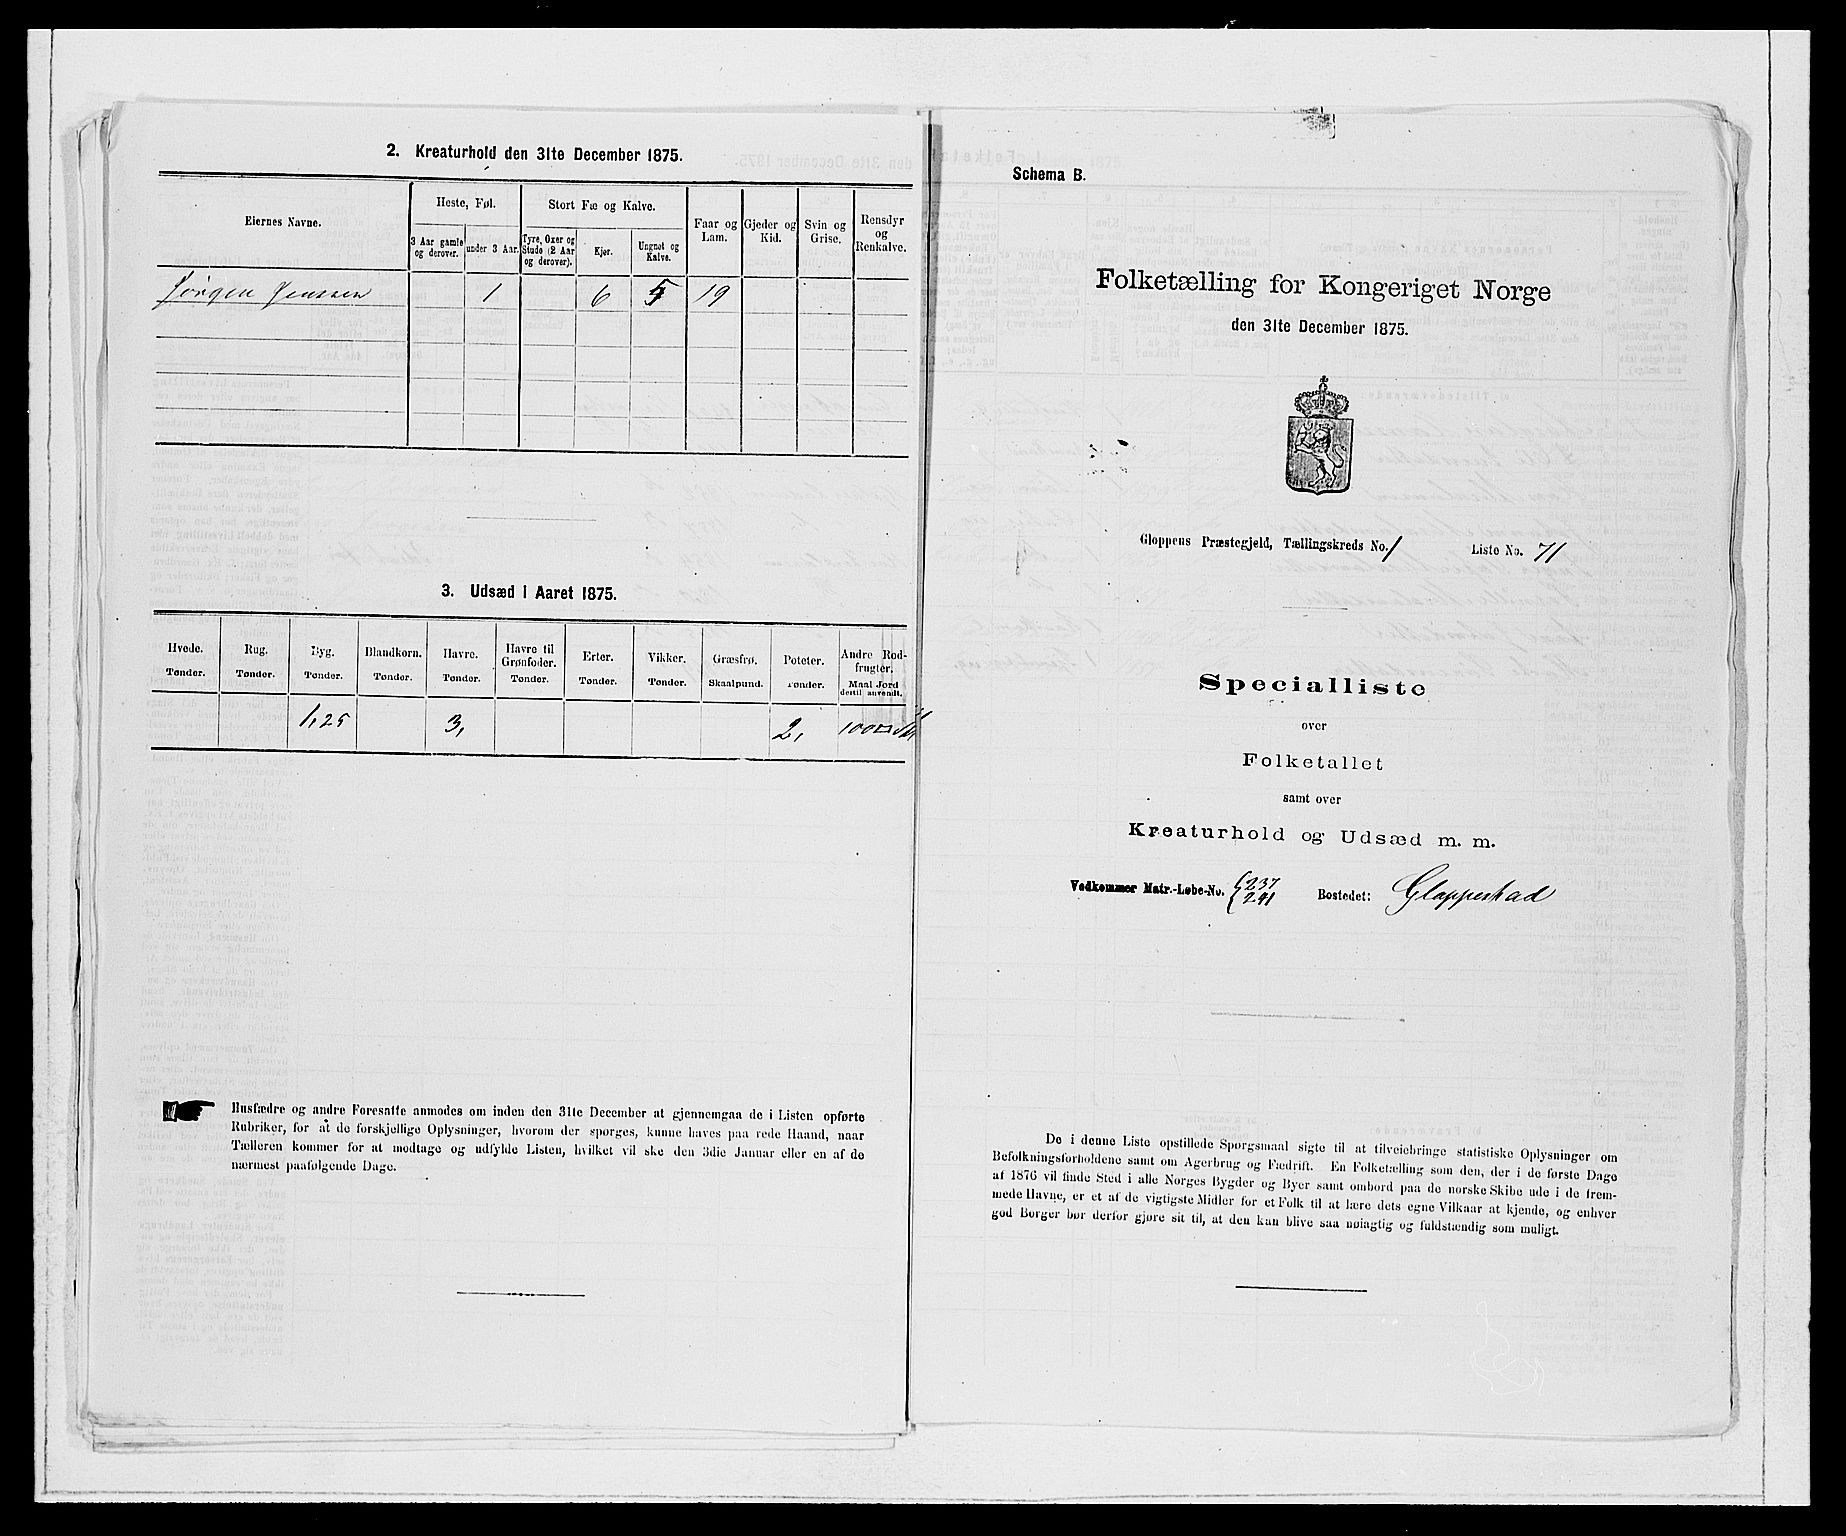 2. Kreaturhold den 31te December 1875.
Eiernes Navne.
Heste, Føl.
Stort Fæ og Kalve.
Faar og Lam.
Gjeder og Kid.
Svin og Grise.
Rensdyr og Renkalve.
3 Aar gamle og derover.
under 3 Aar.
Tyre, Oxer og Stude (2 Aar og derover).
Kjør.
Ungnøt og Kalve.
Jørgen Jenssen 1 6 5 19
3. Udsæd i Aaret 1875.
Hvede. Rug. Byg. Blandkorn. Havre. Havre til Grønfoder. Erter. Vikker. Græsfrø. Poteter. Andre Rodfrugter.
Tønder. Tønder. Tønder. Tønder. Tønder. Tønder. Tønder. Tønder. Skaalpund. Tønder. Maal Jord dertil anvendt.
1,25 3, 2, 100
Husfædre og andre Foresatte anmodes om inden den 31te December at gjennemgaa de i Listen opførte
Rubriker, for at de forskjellige Oplysninger, hvorom der spørges, kunne haves paa rede Haand, naar
Tælleren kommer for at modtage og udfylde Listen, hvilket vil ske den 3die Januar eller en af de
nærmest paafølgende Dage.
Schema B.
Folketælling for Kongeriget Norge
den 31te December 1875.
Gloppens Præstegjeld, Tællingskreds No. 1 Liste No. 71
Specialliste
over
Folketallet
samt over
Kreaturhold og Udsæd m. m.
Vedkommer Matr.-Løbe-No. 237 241 Bostedet: Gloppestad
De i denne Liste opstillede Spørgsmaal sigte til at tilveiebringe statistiske Oplysninger om
Befolkningsforholdene samt om Agerbrug og Fædrift. En Folketælling som den, der i de første Dage
af 1876 vil finde Sted i alle Norges Bygder og Byer samt ombord paa de norske Skibe ude i de frem-
mede Havne, er et af de vigtigste Midler for et Folk til at lære dets egne Vilkaar at kjende, og enhver
god Borger bør derfor gjøre sit til, at den kan blive saa nøiagtig og fuldstændig som muligt.